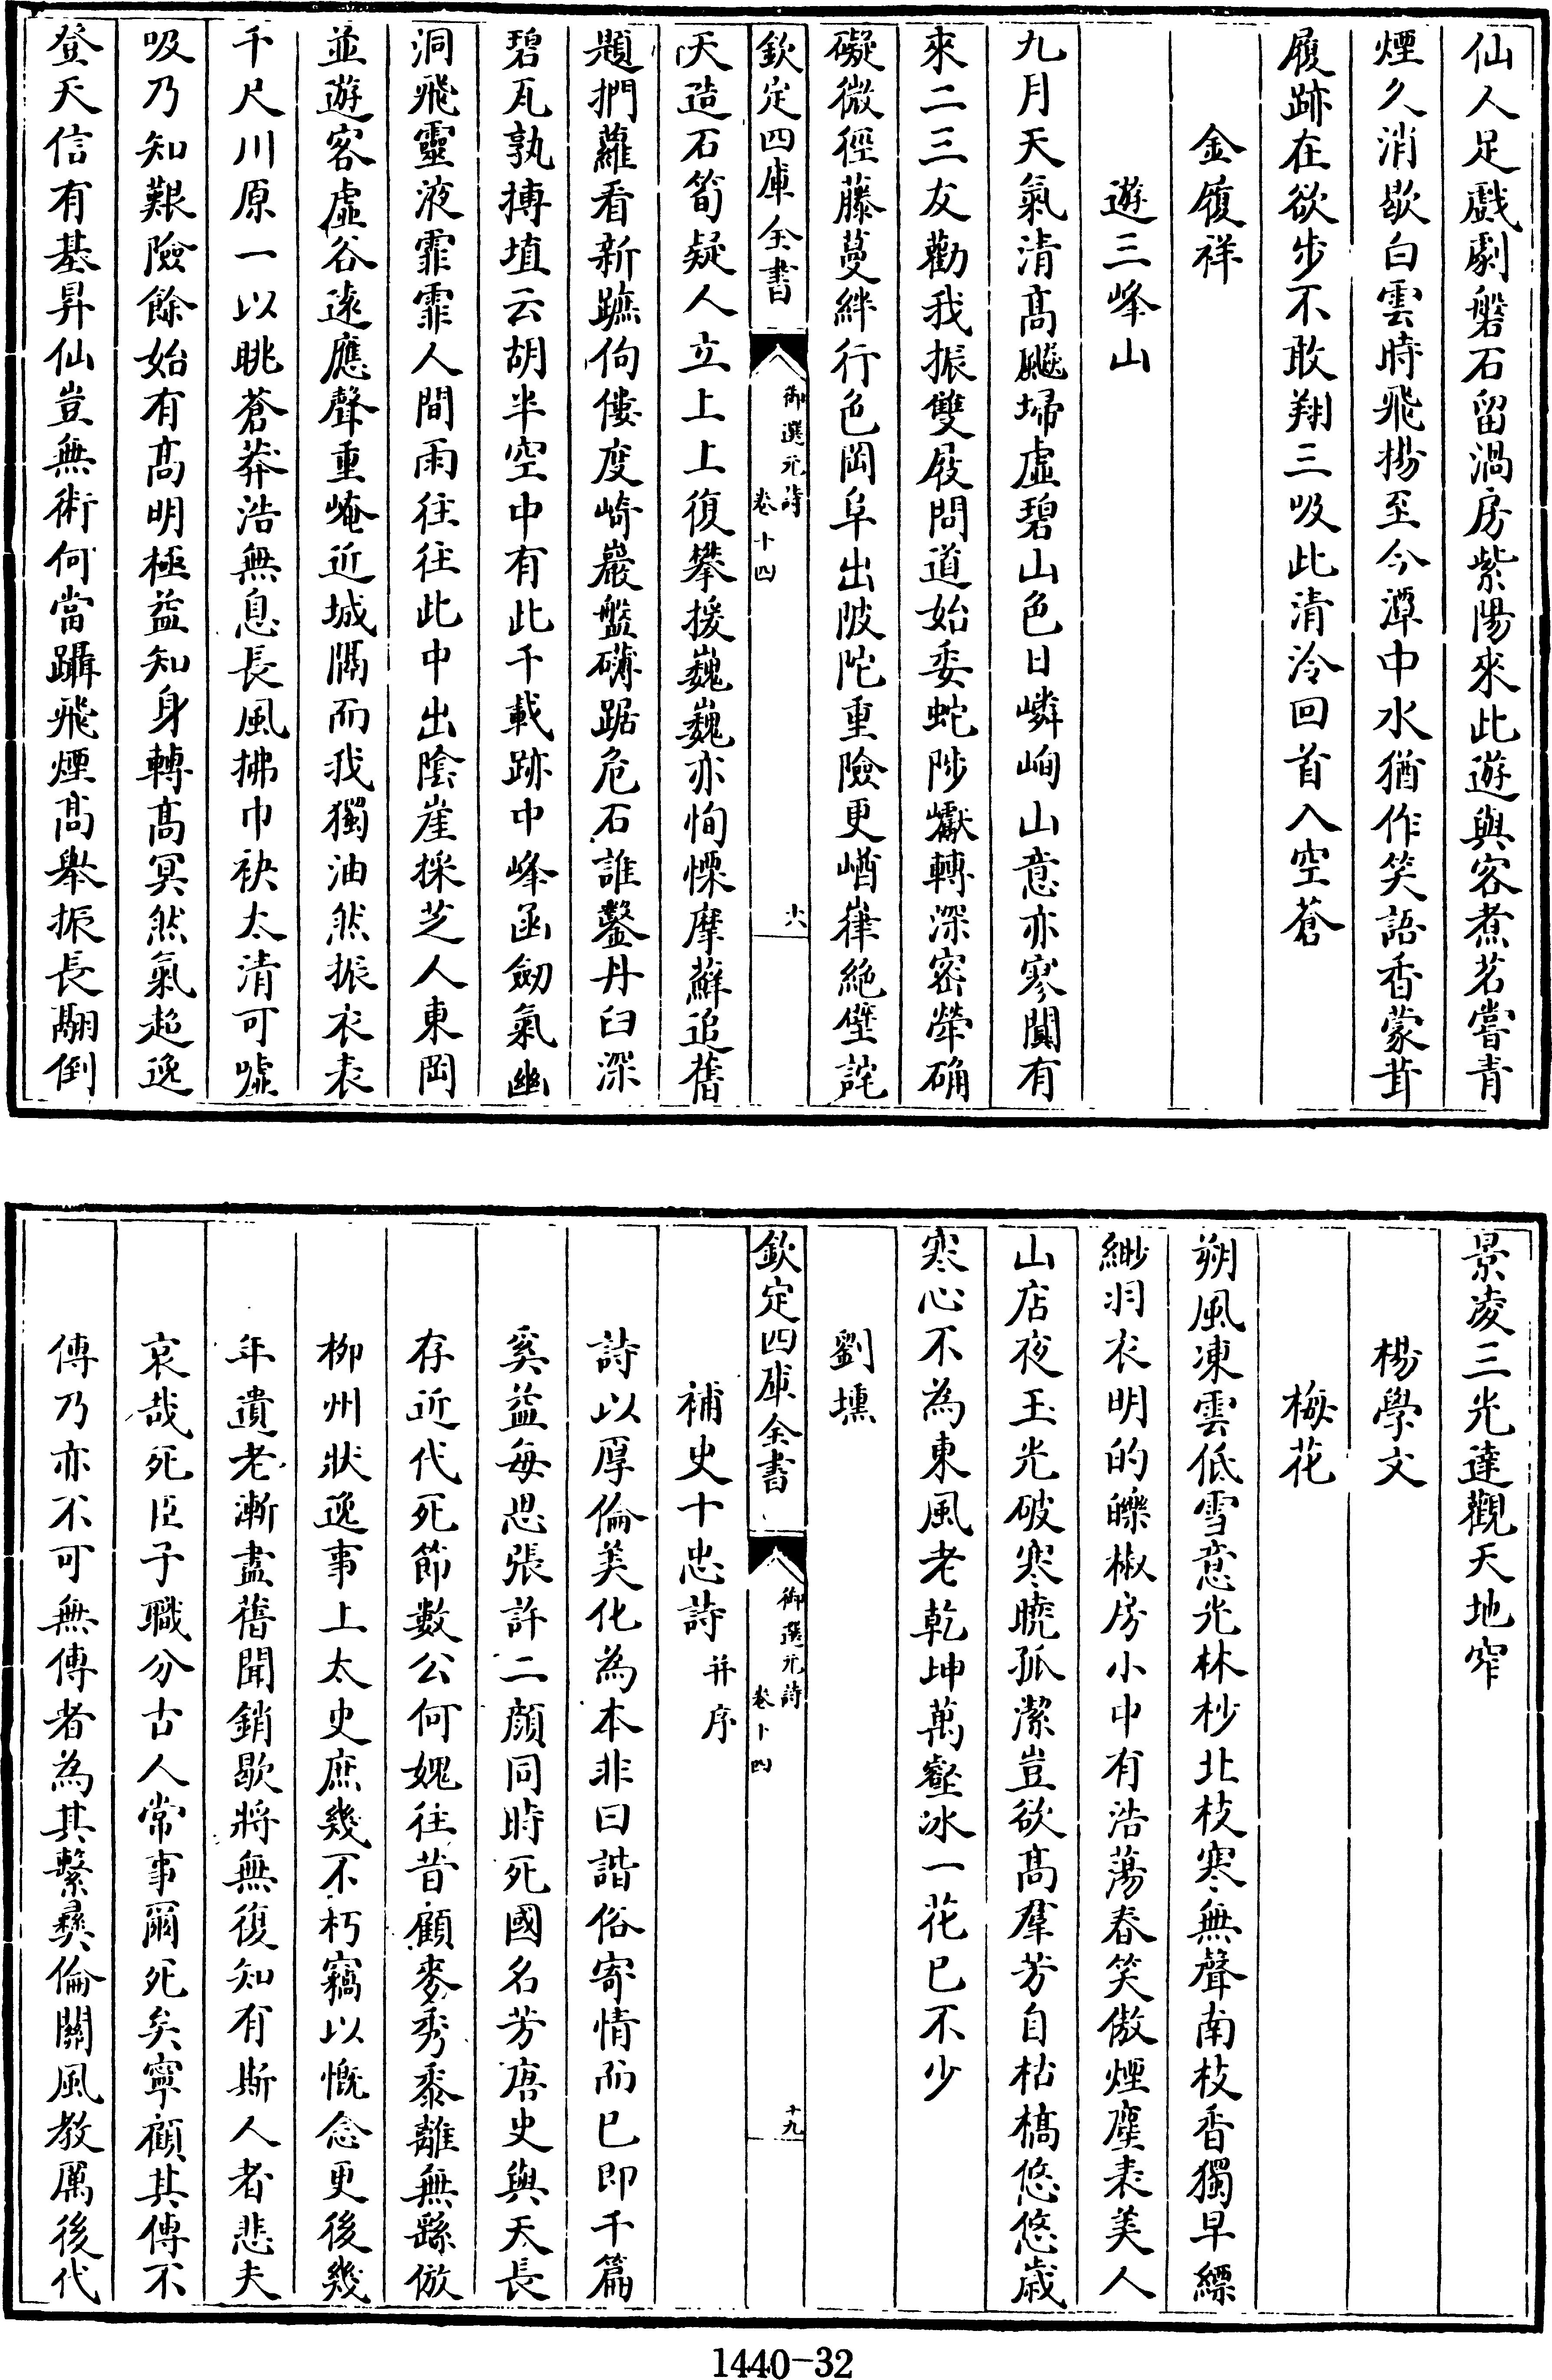 仙人足戲劇磐石留渦房紫陽來此遊與客煮茗嘗青
煙久消歇白雲時飛揚至今潭中水猶作笑語香蒙茸
履跡在欲步不敢翔三吸此清泠回首入空蒼
金履祥
遊三峰山
九月天氣清高飈埽虛碧山色日嶙峋山意亦寥闃有
來二三友勸我振雙屐問道始委蛇陟巘轉深密犖确
礙微徑藤蔓絆行色岡阜出陂陀重險更崷崒絶壁詫
欽定四庫全書
御選元詩
卷十四
十八
天造石筍疑人立上上復攀援巍巍亦恂慄摩蘚追舊
題捫蘿看新蹠佝僂度崎巖盤礴踞危石誰鑿丹臼深
碧瓦孰摶埴云胡半空中有此千載跡中峰函劒氣幽
洞飛靈液霏霏人間雨往往此中出陰崖採芝人東岡
並遊客虛谷遠應聲重崦近城隔而我獨油然振衣表
千尺川原一以眺蒼莽浩無息長風拂巾袂太清可噓
吸乃知艱險餘始有高明極益知身轉高冥然氣超逸
登天信有基昇仙豈無術何當躡飛煙高舉振長翮倒
景凌三光達觀天地窄
楊學文
梅花
朔風凍雲低雪意光林杪北枝寒無聲南枝香獨早縹
緲羽衣明的皪椒房小中有浩蕩春笑傲煙塵表美人
山店夜玉光破寒曉孤潔豈欲高羣芳自枯槁悠悠歲
寒心不為東風老乾坤萬壑冰一花已不少
劉壎
欽定四庫全書
御選元詩
卷十四
十九
補史十忠詩并序
詩以厚倫美化為本非曰諧俗寄情而已即千篇
奚益每思張許二顔同時死國名芳唐史與天長
存近代死節數公何媿往昔顧麥秀黍離無繇倣
柳州狀逸事上太史庶幾不朽竊以慨念更後幾
年遺老漸盡舊聞銷歇將無復知有斯人者悲夫
哀哉死臣子職分古人常事爾死矣寧顧其傳不
傳乃亦不可無傳者為其繫彞倫關風教厲後代
1440-32